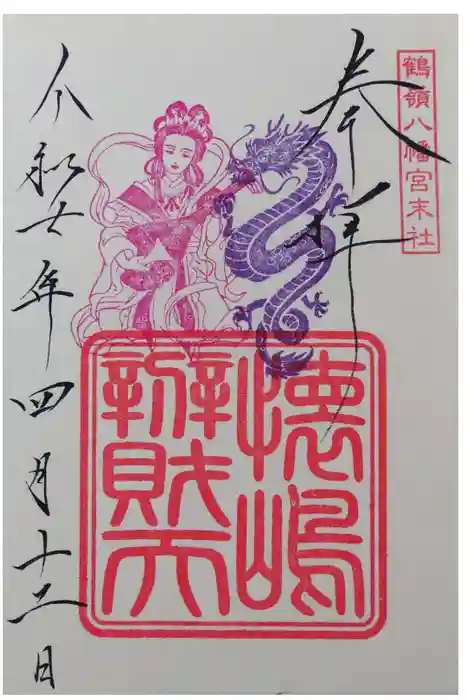 鶴嶺八幡宮末社
奉拝
懐嶋
辨財天
令和七年四月十二日